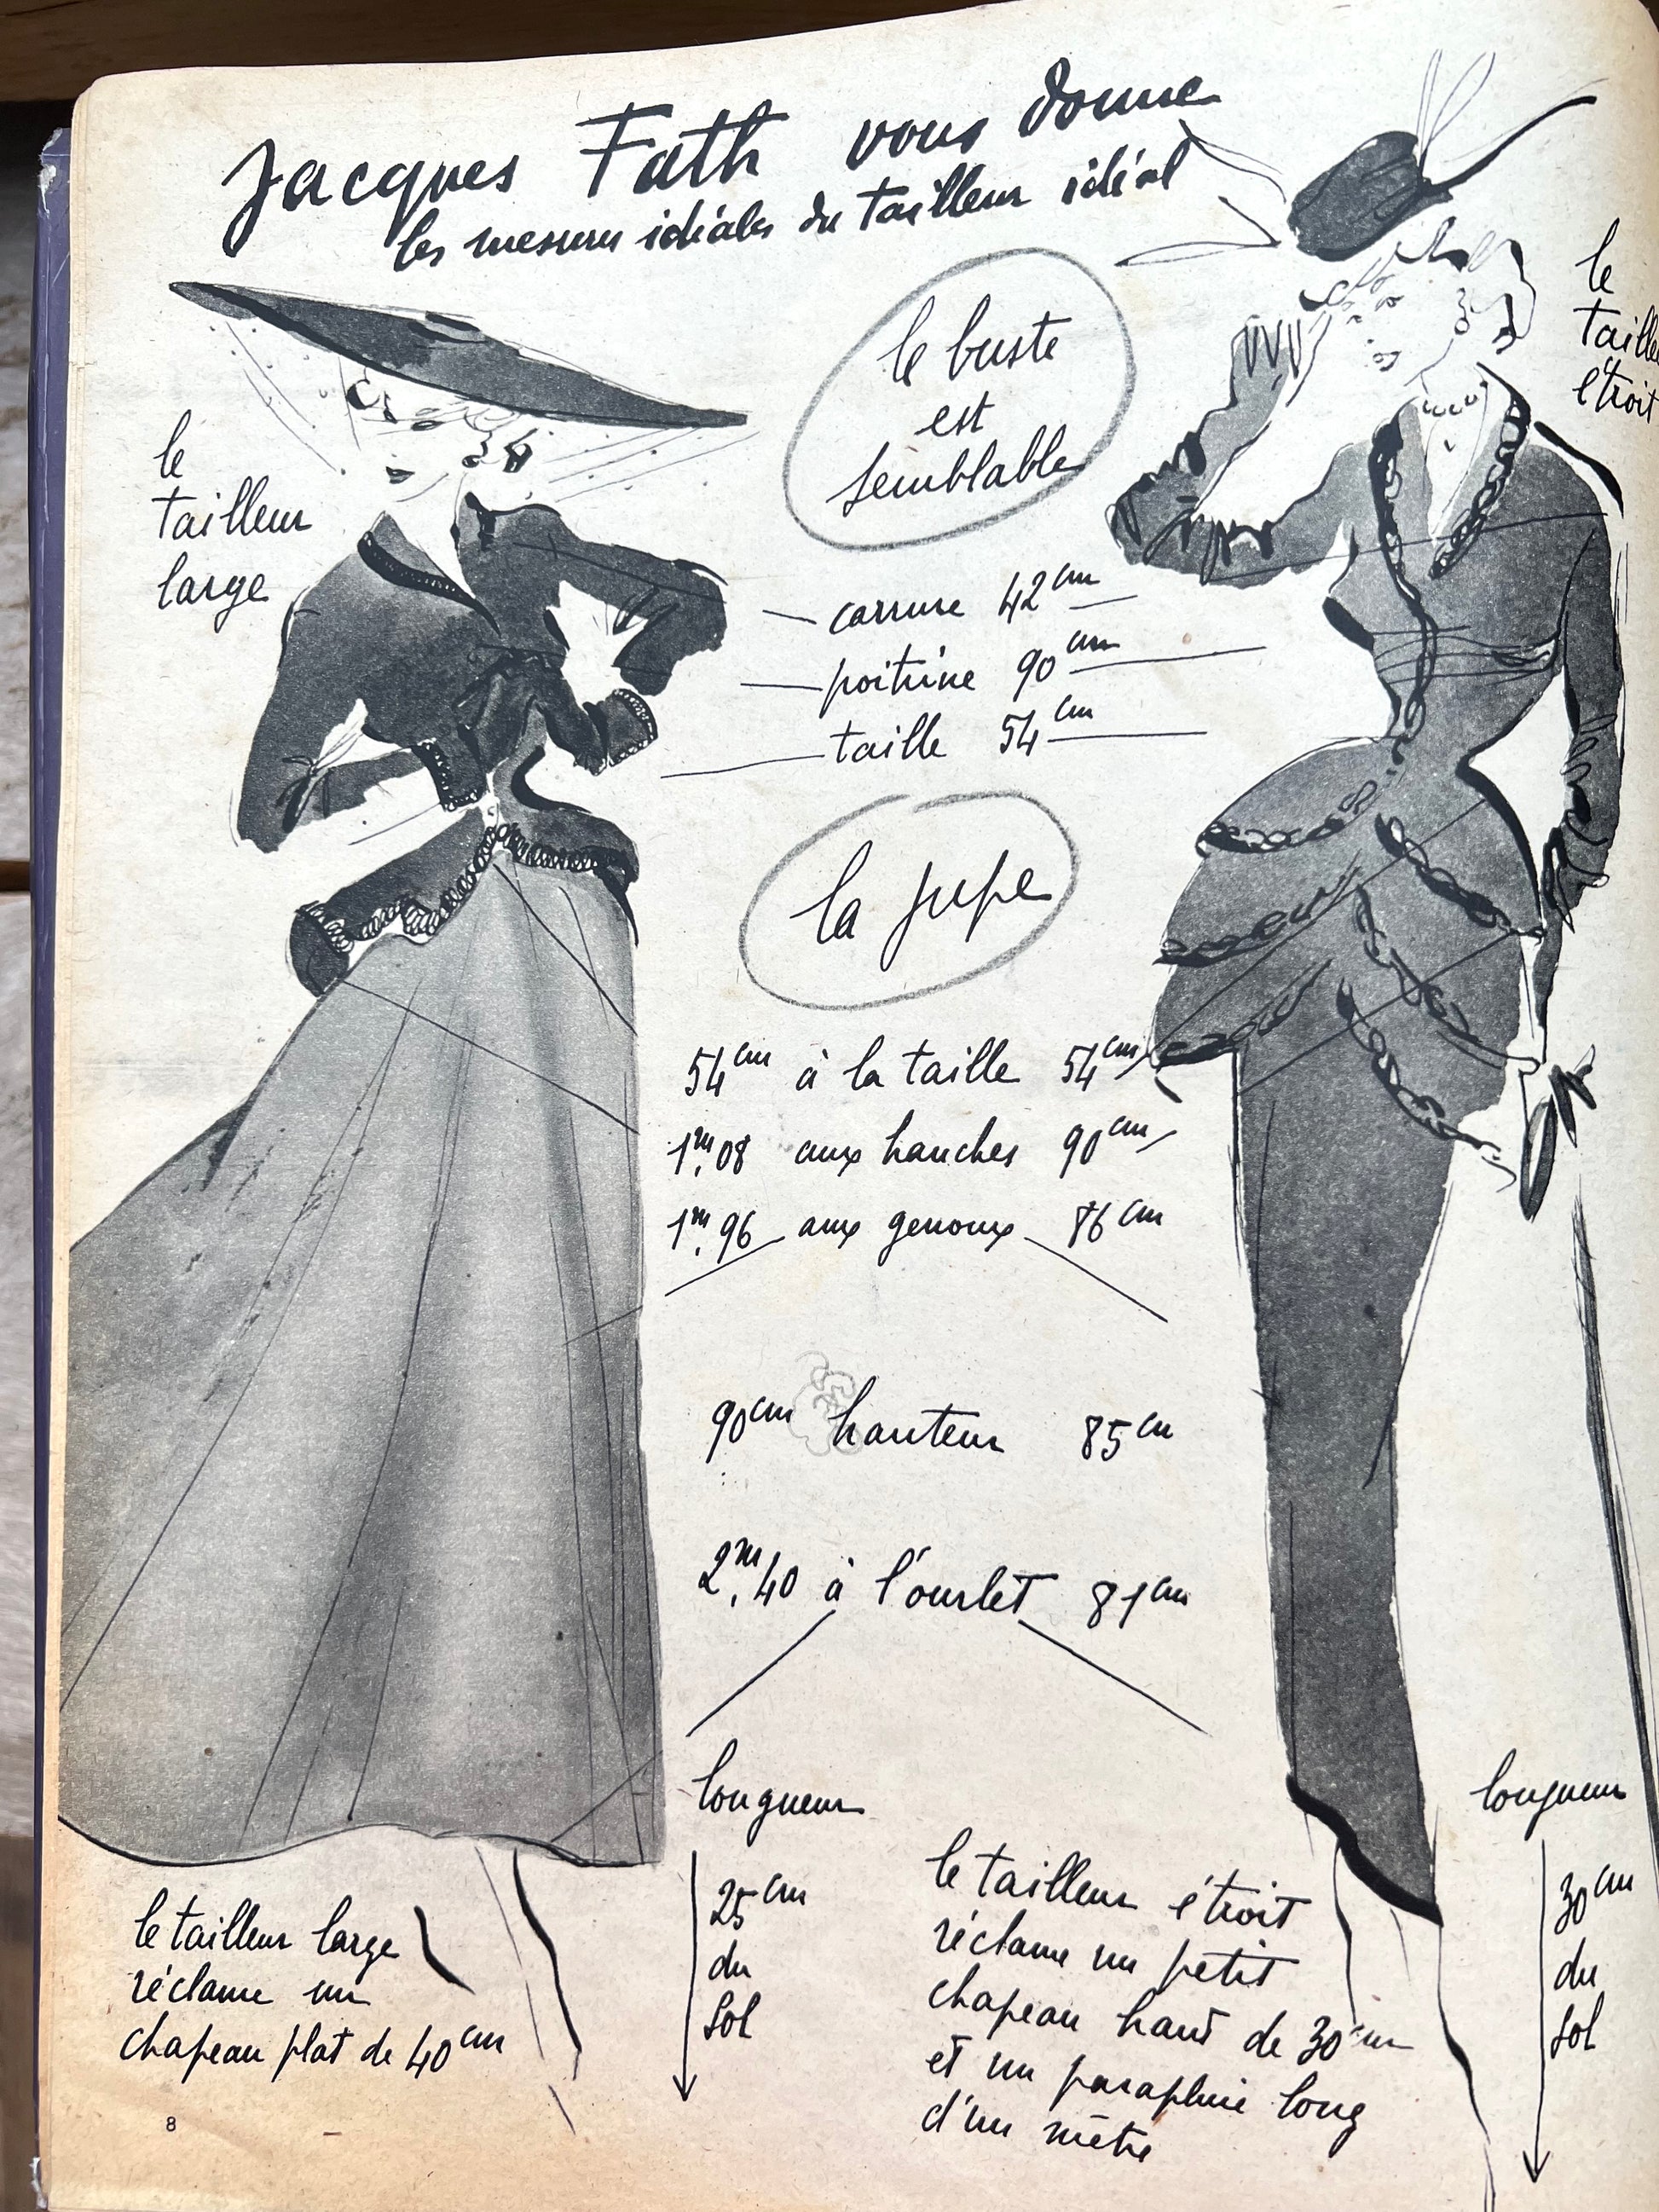 Jacques Fath vous donne
les mesures idéales du tailleur idéal
le
tailleur
large
le buste
est
semblable
le
taille
étroit
carrure 42 cm
poitrine 90 cm
taille 54 cm
la jupe
54 cm à la taille 54 cm
1m,08 aux hanches 90 cm
1m,96 aux genoux 86 cm
90 cm hauteur 85 cm
2m,40 à l'ourlet 81 cm
longueur
25 cm
du
sol
longueur
30 cm
du
sol
le tailleur large
réclame un
chapeau plat de 40 cm
le tailleur étroit
réclame un petit
chapeau haut de 30 cm
et un parapluie long
d'un mètre
8